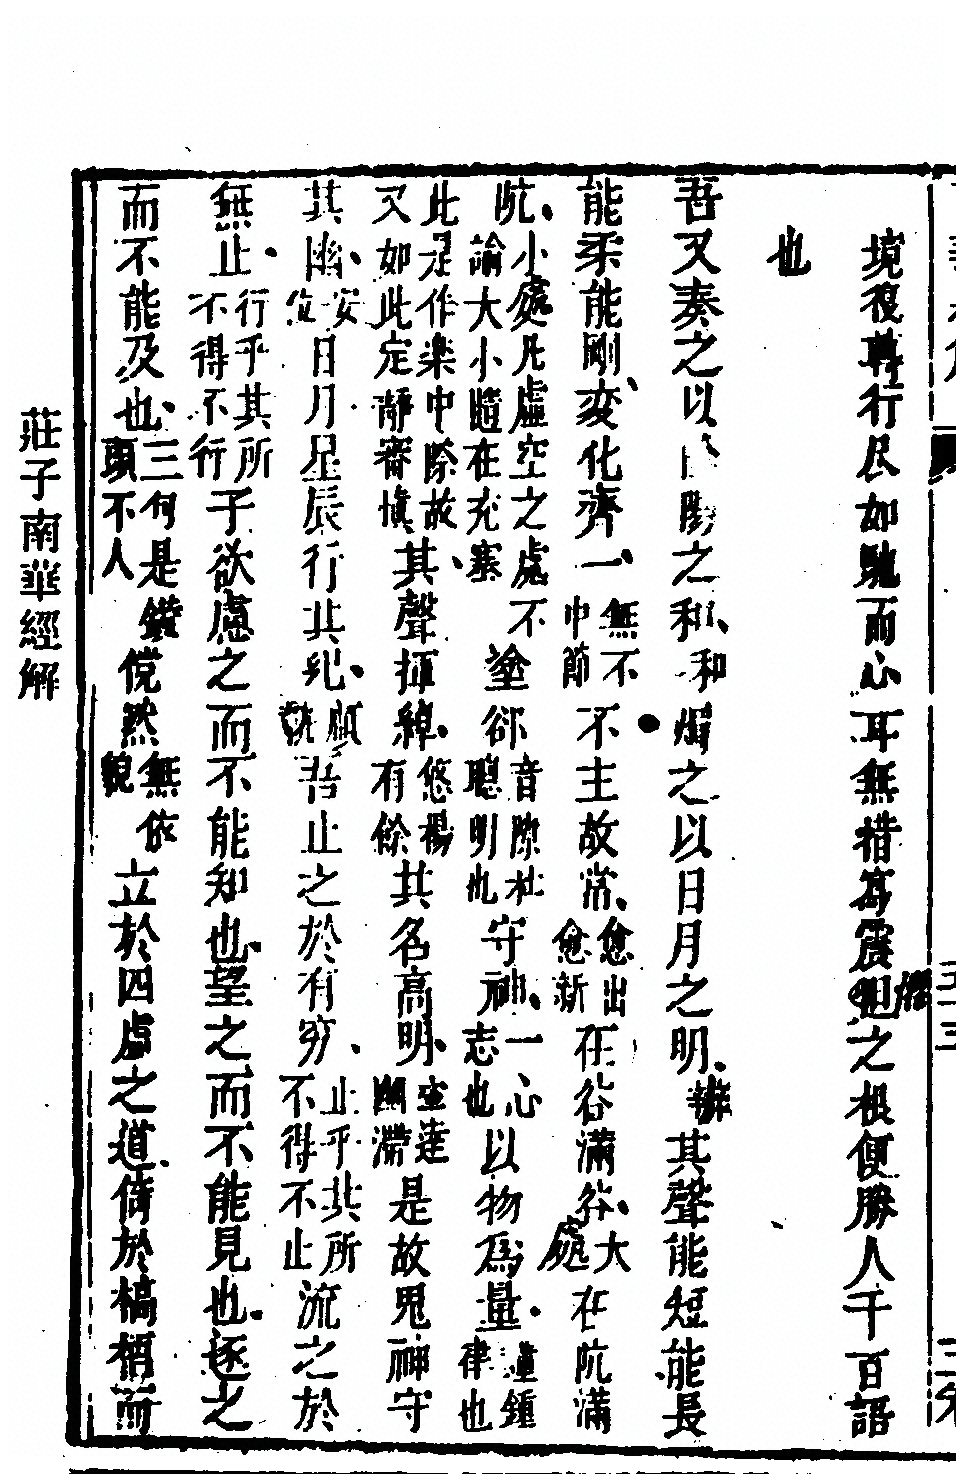 境復轉行尽如馳而心耳無措寫震怛之根便勝人千百語
也
吾又奏之以陰陽之和、和燭之以日月之明、辨其聲能短能長
能柔能剛、變化齊一、無不中節不主故常、愈出愈新在谷滿谷、大處在阬滿
阬、小處凡虛空之處不諭大小隨在充塞塗郤音隙杜聰明也守神、一心志也以物爲量、鍾律也
此是作樂中際故又如此定靜審慎、其聲揮綽、悠揚有餘其名高明、空達幽滯是故鬼神守
其幽、安位日月星辰行其紀、順軌吾止之於有窮、止乎其所不得不止流之於
無止、行乎其所不得不行子欲慮之而不能知也、望之而不能見也、逐之
而不能及也、三何是頭不人儻然無依貌立於四虛之道、倚於槁梧而
莊子南華經解